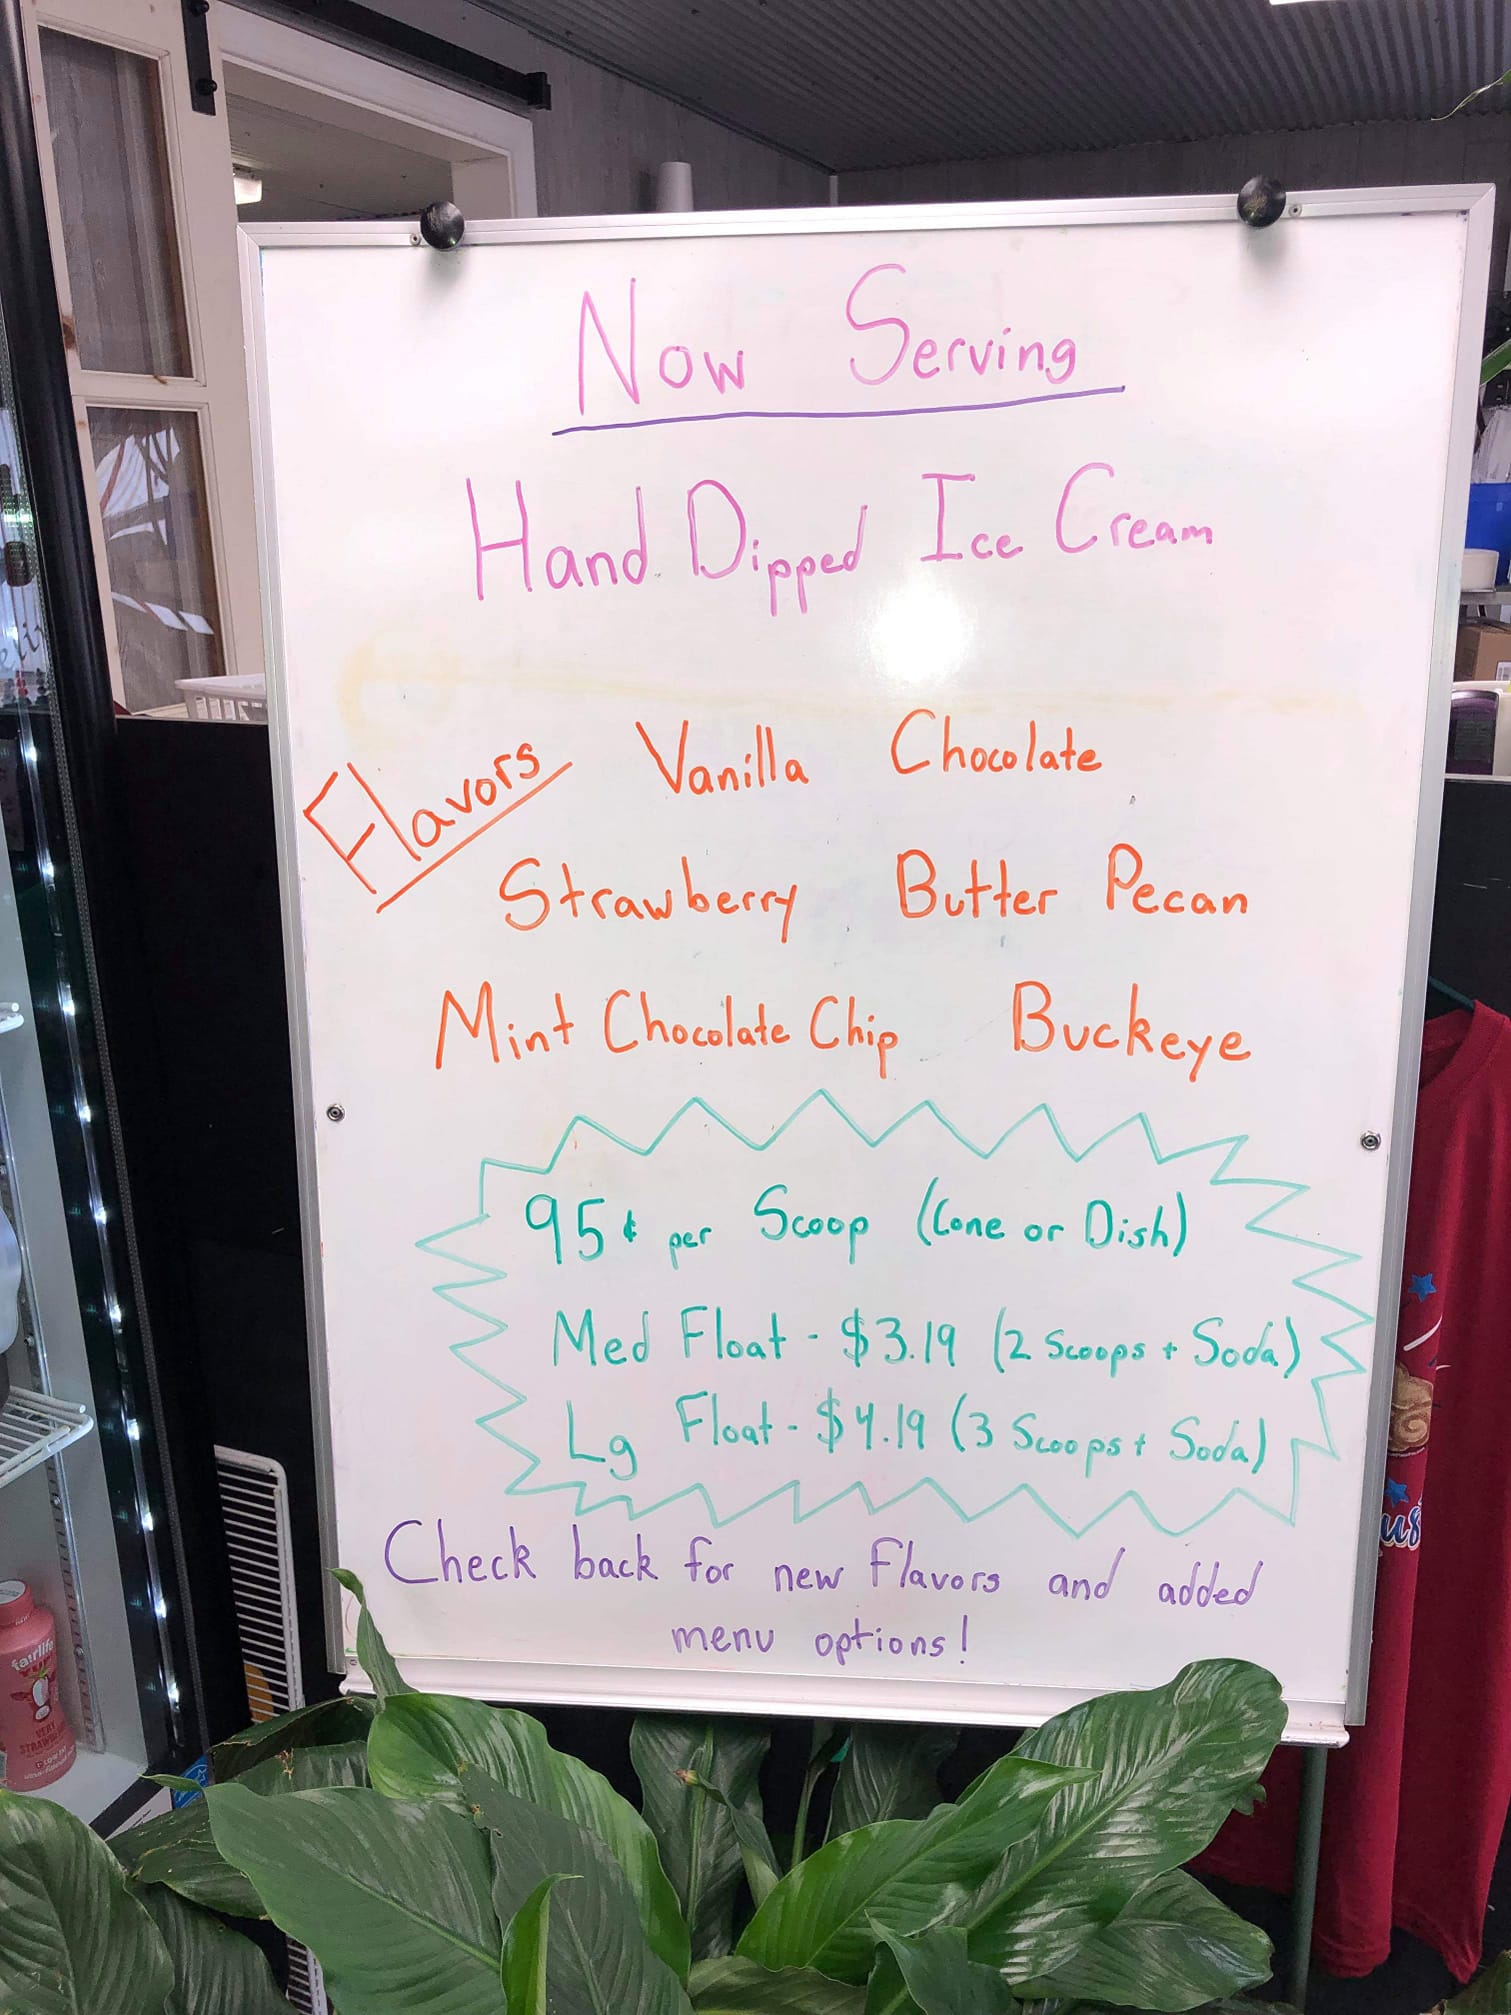 Now Serving
Hand Dipped Ice Cream
Flavors
Vanilla Chocolate
Strawberry Butter Pecan
Mint Chocolate Chip Buckeye
95¢ per Scoop (Cone or Dish)
Med Float - $3.19 (2 Scoops + Soda)
Lg Float - $4.19 (3 Scoops + Soda)
Check back for new Flavors and added
menu options!
fairlife
VERY
STRAWBERRY